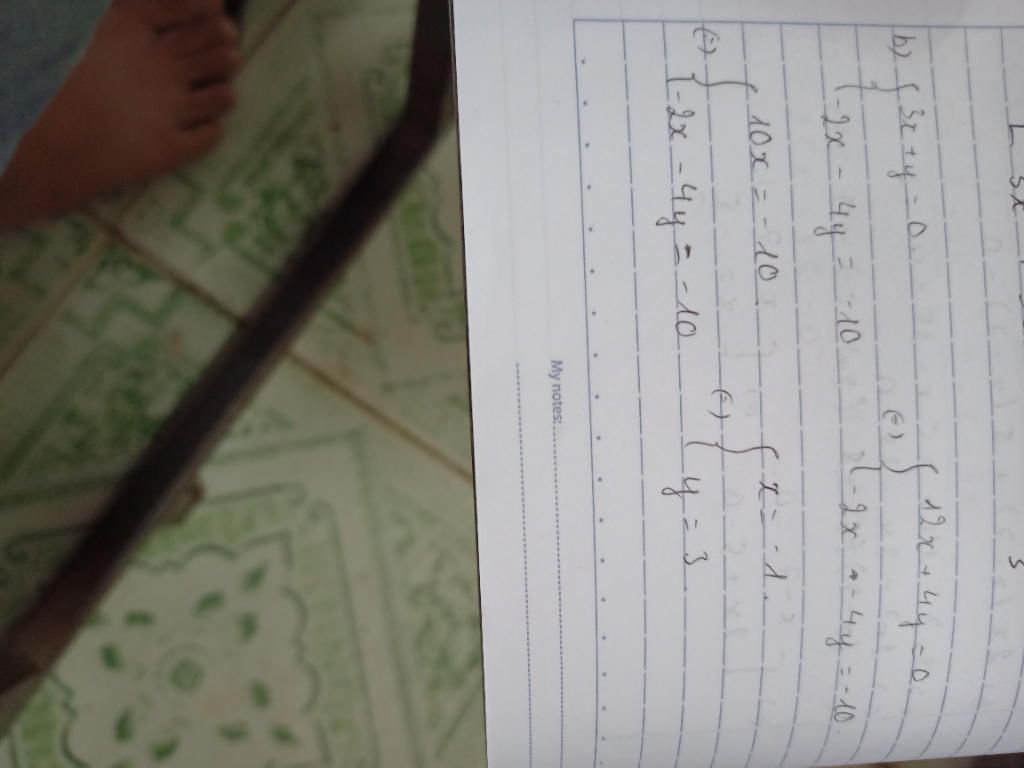 b) { 3x + y = 0 (=) { 12x + 4y = 0
-2x - 4y = -10 { -2x - 4y = -10.
(=) { 10x = -10 (=) { x = -1.
-2x - 4y = -10 y = 3
My notes: